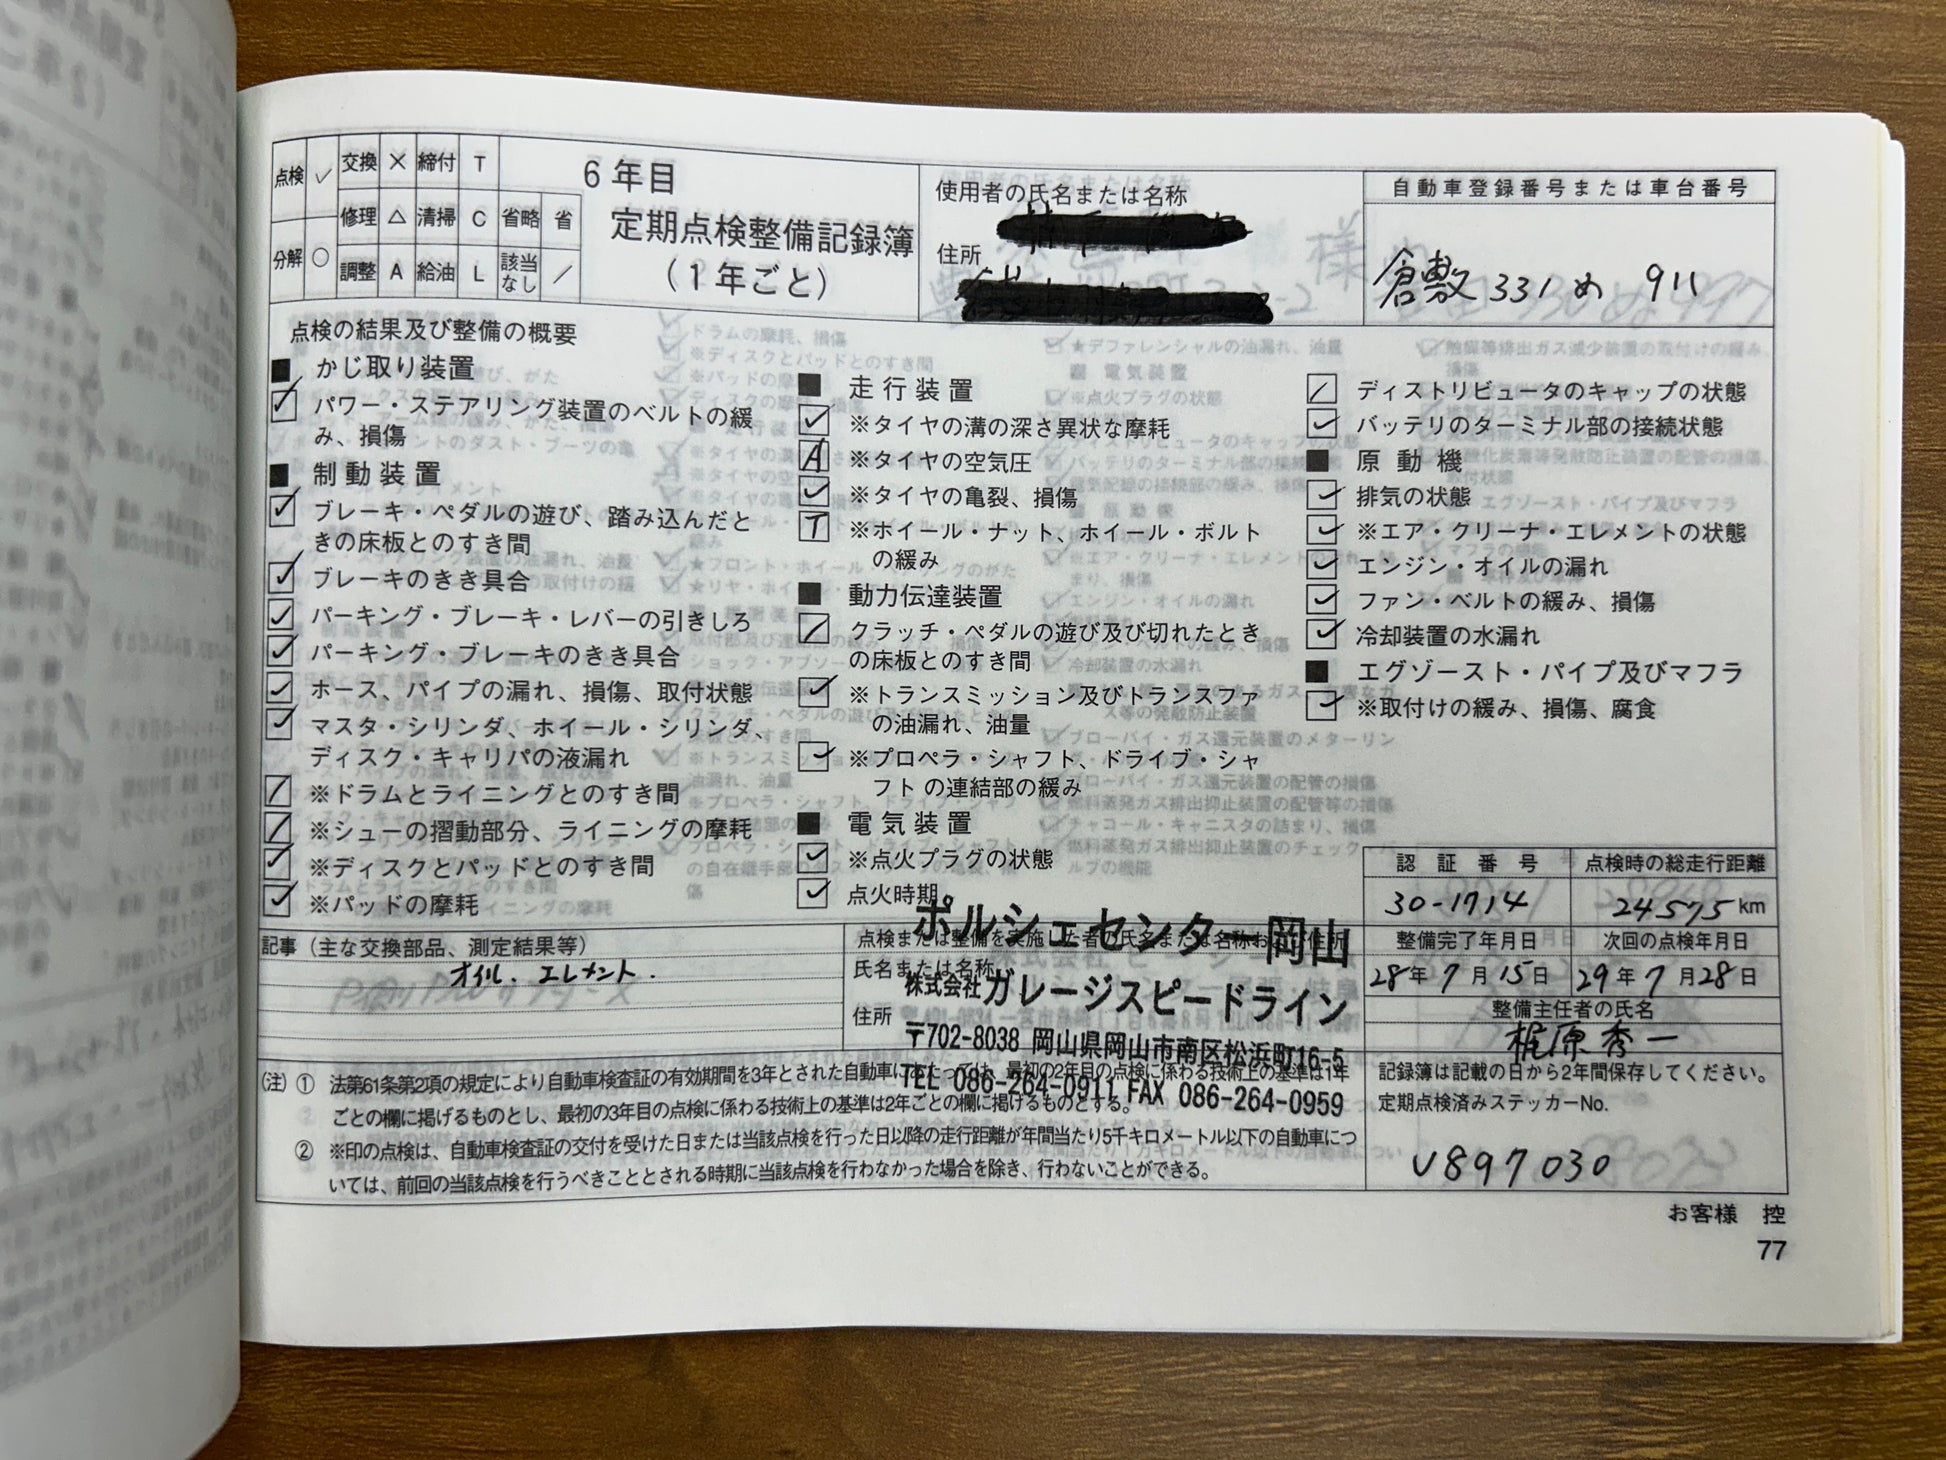 点検 ✓ 交換 × 締付 T
修理 △ 清掃 C 省略 省
分解 ○ 調整 A 給油 L 該当なし ／
6年目
定期点検整備記録簿
(1年ごと)
使用者の氏名または名称
住所
自動車登録番号または車台番号
倉敷 331 め 911
点検の結果及び整備の概要
■ かじ取り装置
✓ パワー・ステアリング装置のベルトの緩
み、損傷
■ 制動装置
✓ ブレーキ・ペダルの遊び、踏み込んだと
きの床板とのすき間
✓ ブレーキのきき具合
✓ パーキング・ブレーキ・レバーの引きしろ
✓ パーキング・ブレーキのきき具合
✓ ホース、パイプの漏れ、損傷、取付状態
✓ マスタ・シリンダ、ホイール・シリンダ、
ディスク・キャリパの液漏れ
／ ※ドラムとライニングとのすき間
／ ※シューの摺動部分、ライニングの摩耗
✓ ※ディスクとパッドとのすき間
✓ ※パッドの摩耗
■ 走行装置
✓ ※タイヤの溝の深さ異状な摩耗
A ※タイヤの空気圧
✓ ※タイヤの亀裂、損傷
T ※ホイール・ナット、ホイール・ボルト
の緩み
■ 動力伝達装置
／ クラッチ・ペダルの遊び及び切れたとき
の床板とのすき間
✓ ※トランスミッション及びトランスファ
の油漏れ、油量
✓ ※プロペラ・シャフト、ドライブ・シャ
フトの連結部の緩み
■ 電気装置
✓ ※点火プラグの状態
✓ 点火時期
／ ディストリビュータのキャップの状態
✓ バッテリのターミナル部の接続状態
■ 原動機
✓ 排気の状態
✓ ※エア・クリーナ・エレメントの状態
✓ エンジン・オイルの漏れ
✓ ファン・ベルトの緩み、損傷
✓ 冷却装置の水漏れ
■ エグゾースト・パイプ及びマフラ
✓ ※取付けの緩み、損傷、腐食
認証番号 点検時の総走行距離
30-1714 24575 km
整備完了年月日 次回の点検年月日
28年 7月 15日 29年 7月 28日
整備主任者の氏名
梶原秀一
記事（主な交換部品、測定結果等）
オイル. エレメント.
点検または整備を実施した者の氏名または名称および住所
氏名または名称
住所
ポルシェセンター岡山
株式会社ガレージスピードライン
〒702-8038 岡山県岡山市南区松浜町16-5
TEL 086-264-0911 FAX 086-264-0959
(注) ① 法第61条第2項の規定により自動車検査証の有効期間を3年とされた自動車にあたっては、最初の2年目の点検に係わる技術上の基準は1年
ごとの欄に掲げるものとし、最初の3年目の点検に係わる技術上の基準は2年ごとの欄に掲げるものとする。
② ※印の点検は、自動車検査証の交付を受けた日または当該点検を行った日以降の走行距離が年間当たり5千キロメートル以下の自動車につ
いては、前回の当該点検を行うべきこととされる時期に当該点検を行わなかった場合を除き、行わないことができる。
記録簿は記載の日から2年間保存してください。
定期点検済みステッカーNo.
V897030
お客様 控
77